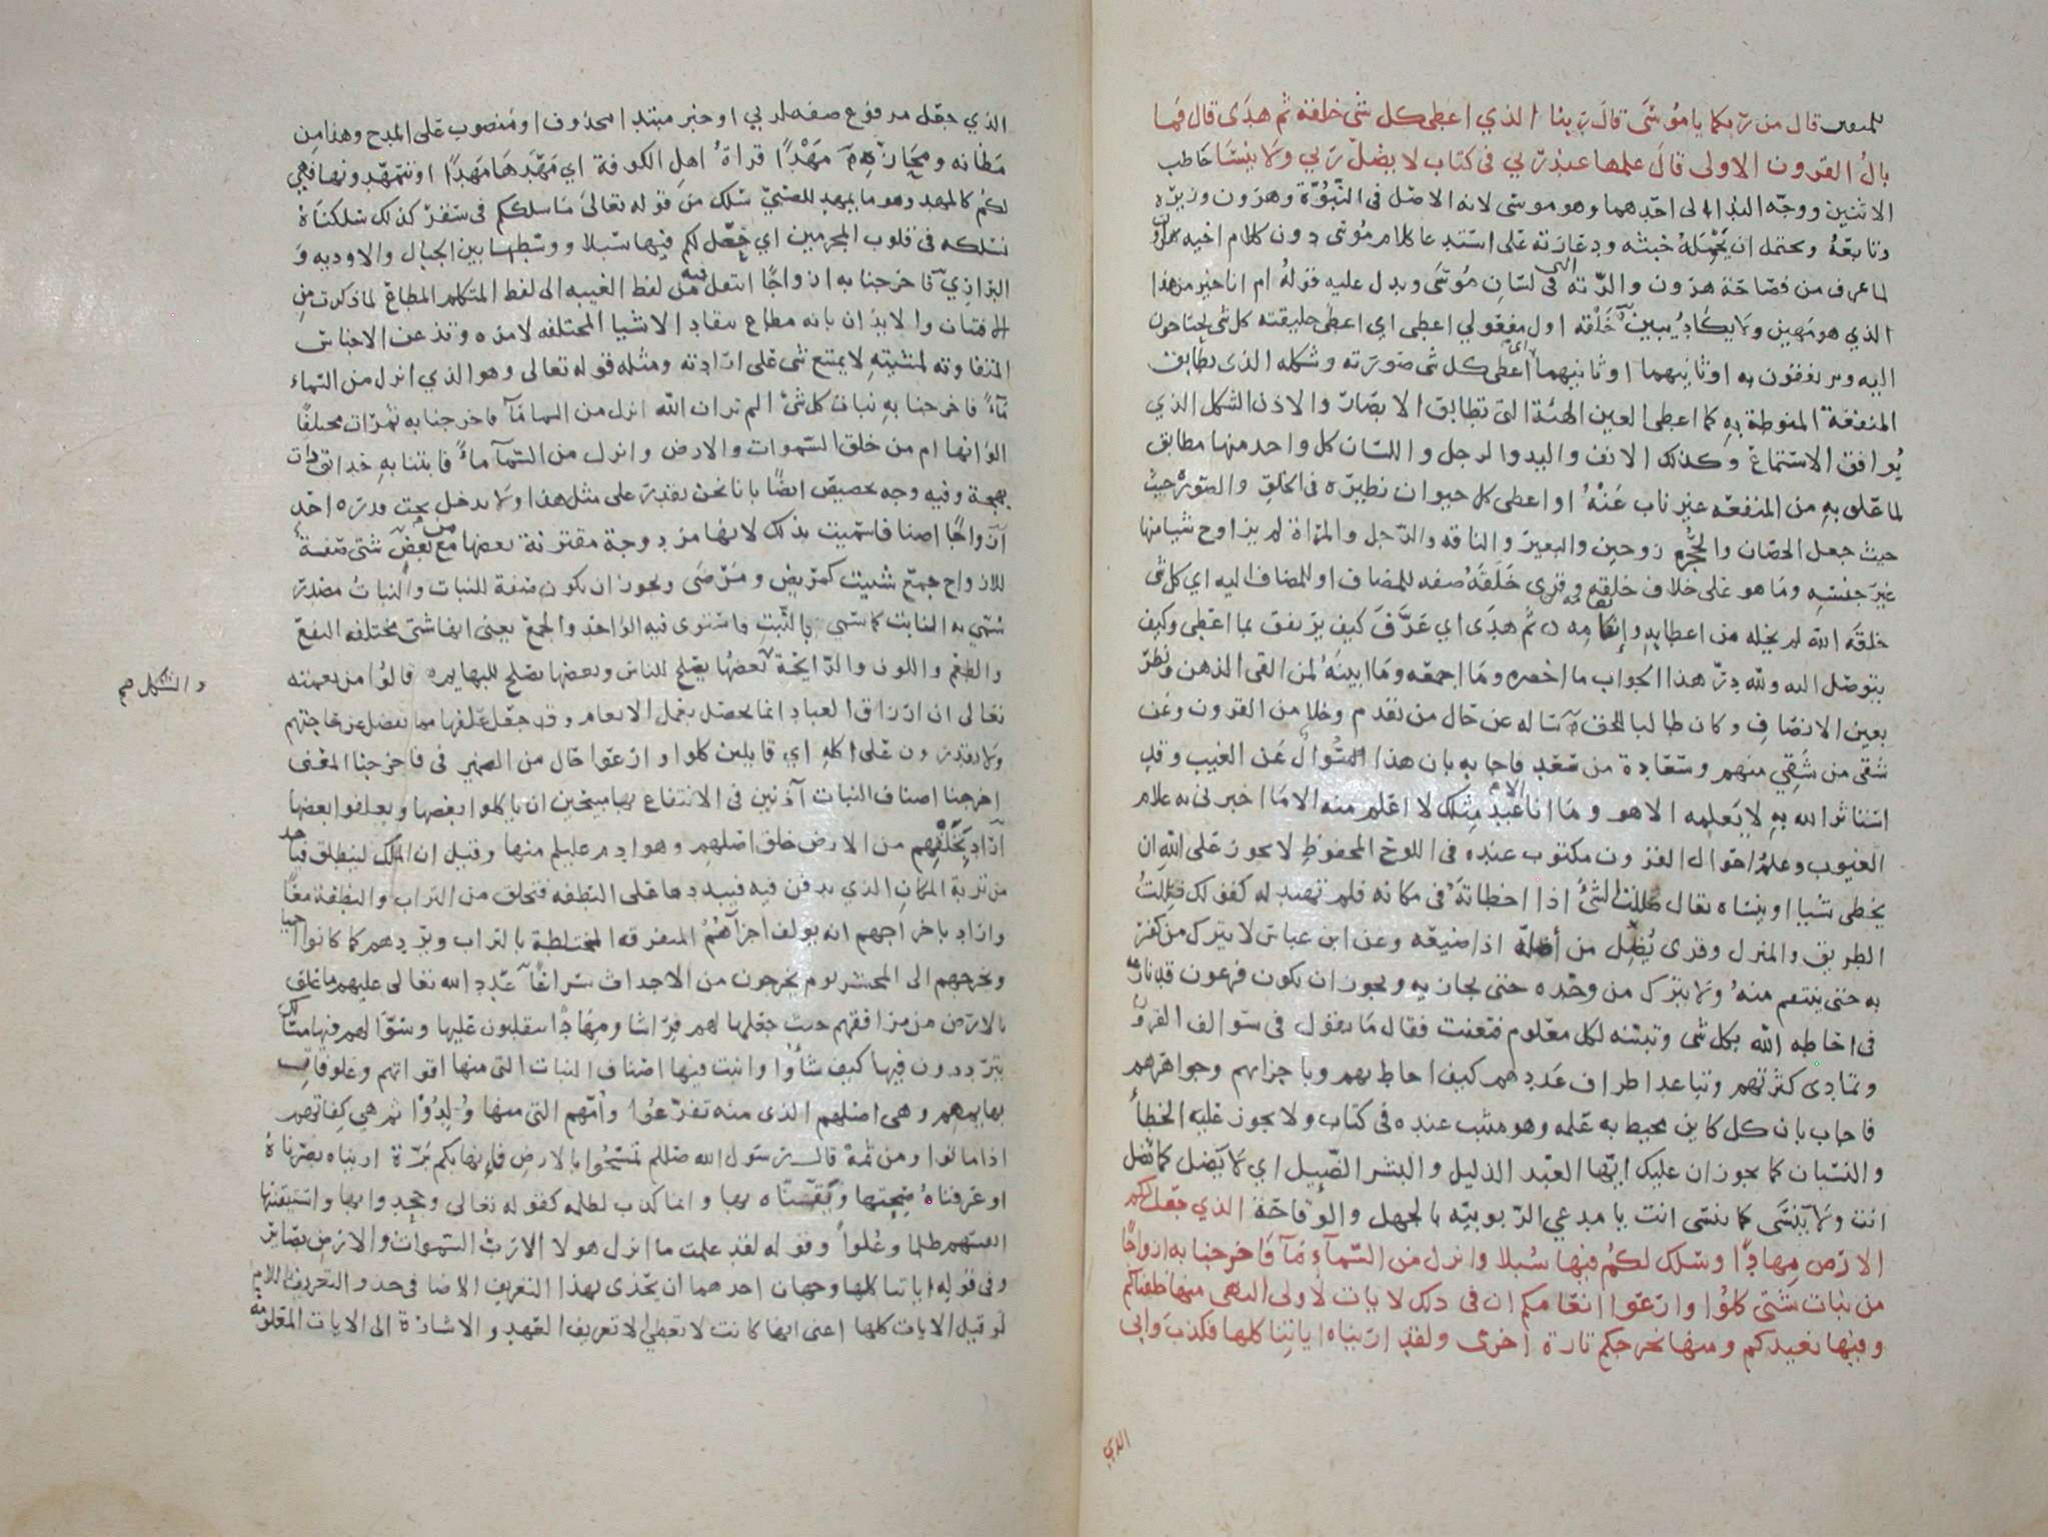 للمتقين قال من ربكما يا موسى قال ربنا الذي اعطى كل شي خلقه ثم هدى قال فما
بال القرون الاولى قال علمها عند ربي في كتاب لا يضل ربي ولا ينسا خاطب
الاثنين ووجه الندا الى احدهما وهو موسى لانه الاصل في النبوة وهرون وزيره
وتابعه ويحتمل ان يحمله خبثه ودعارته على استدعا كلام موسى دون كلام اخيه هرون
لما عرف من فصاحة هرون والرتة التي في لسان موسى ويدل عليه قوله ام انا خير من هذا
الذي هو مهين ولا يكاد يبين خلقه اول مفعولي اعطى اي اعطى خليقته كل شي يحتاجون
اليه ويرتفقون به او ثانيهما او ثانيهما اي اعطى كل شي صورته وشكله الذي يطابق
المنفعة المنوطة به كما اعطى العين الهيئة التي تطابق الابصار والاذن الشكل الذي
يوافق الاستماع وكذلك الانف واليد والرجل واللسان كل واحد منها مطابق
لما علق به من المنفعة غير ناب عنه او اعطى كل حيوان نظيره في الخلق والصورة حيث
حيث جعل الحصان والحجر زوجين والبعير والناقه والرجل والمراة لم يزاوج شيا منها
غير جنسه وما هو على خلاف خلقه وقري خلقه صفه للمضاف او للمضاف اليه اي كل شي
خلقه الله لم يخله من اعطايه وانعامه ثم هدى اي عرف كيف يرتفق بما اعطى وكيف
يتوصل اليه ولله در هذا الجواب ما اخصره وما اجمعه وما ابينه لمن القى الذهن ونظر
بعين الانصاف وكان طالبا للحق ساله عن حال من تقدم وخلا من القرون وعن
شقى من شقي منهم وسعادة من سعد فاجابه بان هذا السوال عن الغيب وقد
استاثر الله به لا يعلمه الا هو وما انا الا عبد مثلك لا اعلم منه الا ما اخبرني به علام
الغيوب وعلم احوال القرون مكتوب عنده في اللوح المحفوظ لا يجوز على الله ان
يخطى شيا او ينساه يقال ضللت الشئ اذا اخطاته في مكانه فلم تهتد له كقولك ضللت
الطريق والمنزل وقرى يضل من اضله اذا ضيعه وعن ابن عباس لا يترك من كفر
به حتى ينتقم منه ولا يترك من وحده حتى يجازيه ويجوز ان يكون فرعون قد نازعه
في احاطه الله بكل شي وتبينه لكل معلوم فتعنت فقال ما يقول في سوالف القرون
وتمادى كثرتهم وتباعد اطراف عددهم كيف احاط بهم وباجزايهم وجواهرهم
فاجاب بان كل كاين محيط به علمه وهو مثبت عنده في كتاب ولا يجوز عليه الخطأ
والنسيان كما يجوزان عليك ايها العبد الذليل والبشر الضييل اي لا يضل كما تضل
انت ولا ينسى كما تنسى انت يا مدعي الربوبيه بالجهل والوقاحة الذي جعل لكم
الارض مهادا وسلك لكم فيها سبلا وانزل من السماء مآ فاخرجنا به ازواجا
من نبات شتى كلوا وارعوا انعامكم ان في ذلك لايات لاولى النهى منها خلقناكم
وفيها نعيدكم ومنها نخرجكم تارة اخرى ولقد اريناه اياتنا كلها فكذب وابى
الذي
الذي جعل مرفوع صفه لربي او خبر مبتدا محذوف او منصوب على المدح وهذا من
مظانه ومجازه مهدا قراة اهل الكوفة اي مهدها مهدا او تتمهدونها فهي
لكم كالمهد وهو ما يمهد للصبي سلك من قوله تعالى ما سلككم في سقر كذلك سلكناه
نسلكه في قلوب المجرمين اي جعل لكم فيها سبلا ووسطها بين الجبال والاوديه و
البراري فاخرجنا به ازواجا انتقل فيه من لفظ الغيبه الى لفظ المتكلم المطاع لما ذكرت من
الافتنان والايذان بانه مطاع تنقاد الاشيا المختلفه لامره وتذعن الاجناس
المتفاوته لمشيته لا يمتنع شى على ارادته ومثله قوله تعالى وهو الذي انزل من السماء
مآء فاخرجنا به نبات كل شئ الم تر ان الله انزل من السما مآ فاخرجنا به ثمرات مختلفا
الوانها ام من خلق السموات والارض وانزل من السمآ ماء فانبتنا به حدائق ذات
بهجة وفيه وجه تخصيص ايضا بانا نحن نقدر على مثل هذا ولا يدخل تحت قدرة احد
ازواجا اصنافا سميت بذلك لانها مزدوجة مقترنة بعضها مع بعض شتى صفة
للازواج جمع شتيت كمريض ومرضى ويجوز ان يكون صفة للنبات والنبات مصدر
سمي به النابت كما سمى بالنبت فاستوى فيه الواحد والجمع يعنى انها شتى مختلفه النفع
والطعم واللون والرايحة بعضها يصلح للناس وبعضها يصلح للبهايم قالوا من نعمته
والشكل صح
تعالى ان ارزاق العباد انما تحصل بعمل الانعام وقد جعل علفها مما يفضل عن حاجتهم
ولا يقدرون على اكله اي قايلين كلوا وارعوا حال من الضمير في فاخرجنا المعنى
اخرجنا اصناف النبات آذنين في الانتفاع بها مبيحين ان ياكلوا بعضها ويعلفوا بعضها
اراد بخلقهم من الارض خلق اصلهم وهو ادم عليلم منها وقيل ان الملك لينطلق فياخذ
من تربة المكان الذي يدفن فيه فيبددها على النطفه فتخلق من التراب والنطفة معا
واراد باخراجهم انه يولف اجزآهم المتفرقه المختلطة بالتراب ويردهم كما كانوا احيا
ويخرجهم الى المحشر يوم يخرجون من الاجداث سراعا عدد الله تعالى عليهم ما علق
بالارض من مرافقهم حيث جعلها لهم فراشا ومهادا يتقلبون عليها وسوى لهم فيها مسالك
يترددون فيها كيف شاؤا وانبت فيها اصناف النبات التي منها اقواتهم وعلوفات
بهايمهم وهي اصلهم الذي منه تفرعوا وامهم التي منها ولدوا ثم هي كفاتهم
اذا ماتوا ومن ثم قال رسول الله صللم تمسحوا بالارض فانها بكم برة اريناه بصرناه
او عرفناه صحتها ويقناه بها وانما كذب لظلمه كقوله تعالى وجحدوا بها واستيقنتها
انفسهم ظلما وعلوا وقوله لقد علمت ما انزل هولا الا رب السموات والارض بصائر
وفي قوله اياتنا كلها وجهان احدهما ان يحذى بهذا التعريف الاضافي حذو التعريف باللام
لو قيل الايات كلها اعنى انها كانت لا تعطي الا تعريف العهد والاشارة الى الايات المعلومه